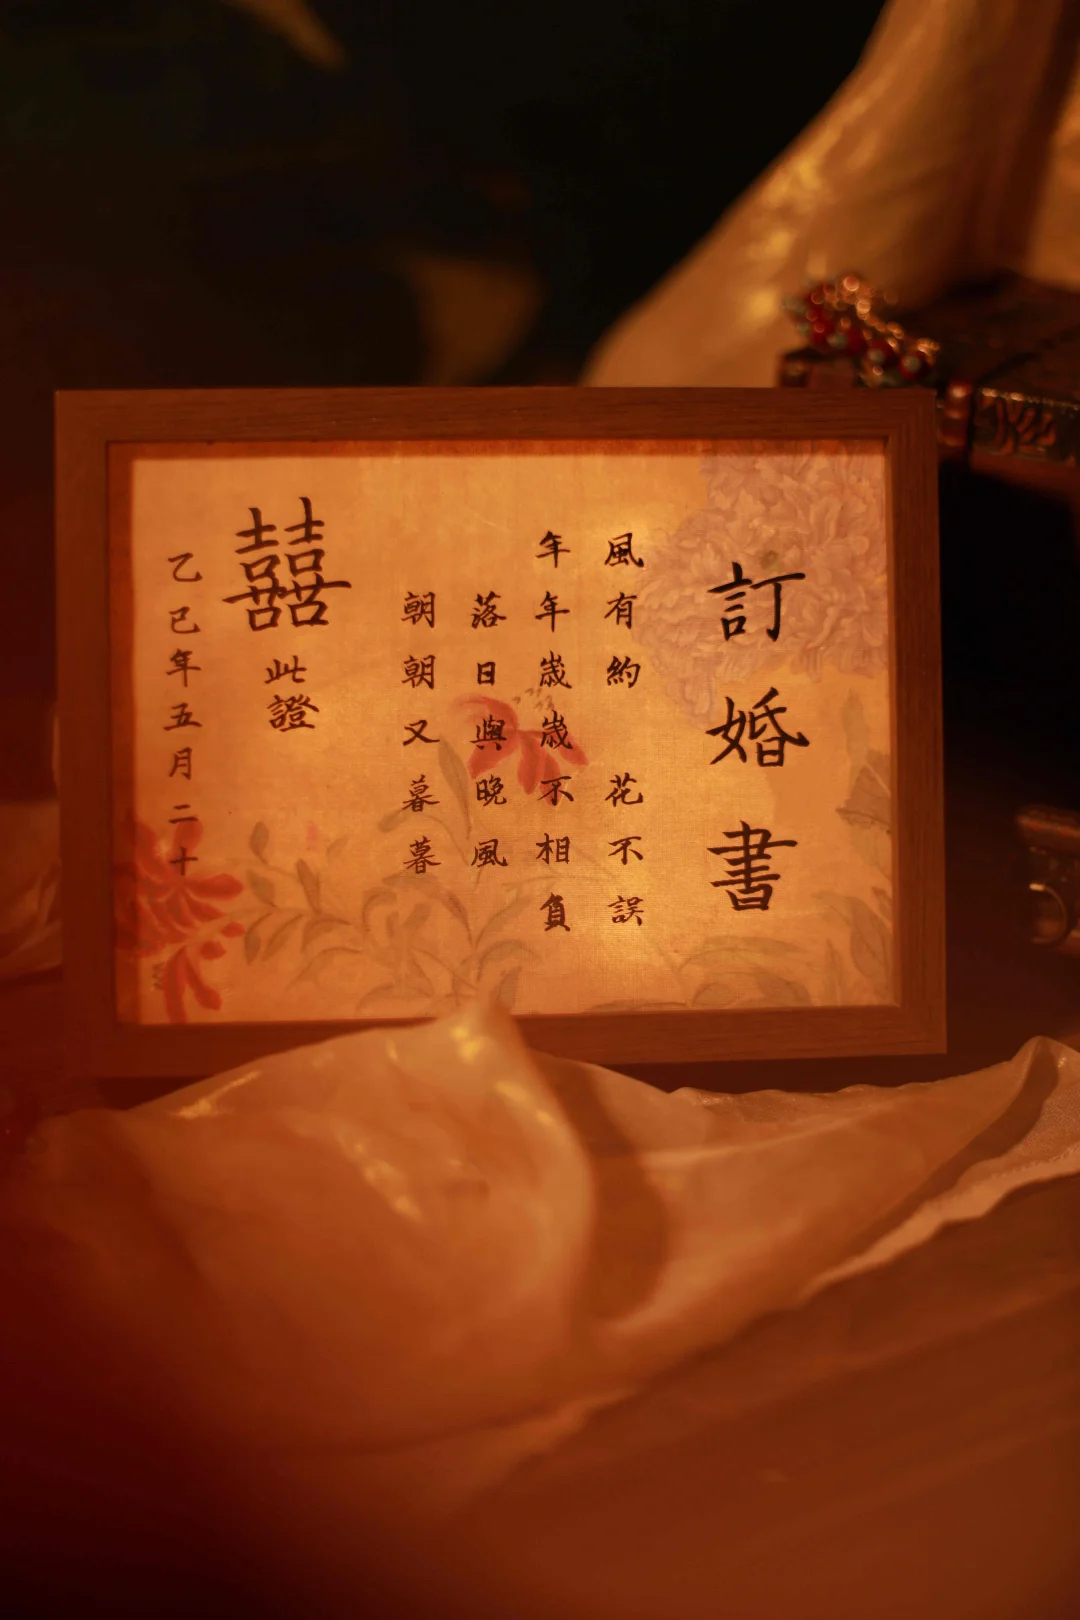 訂婚書
風有約 花不誤
年年歲歲不相負
落日與晚風
朝朝又暮暮
囍
此證
乙巳年五月二十